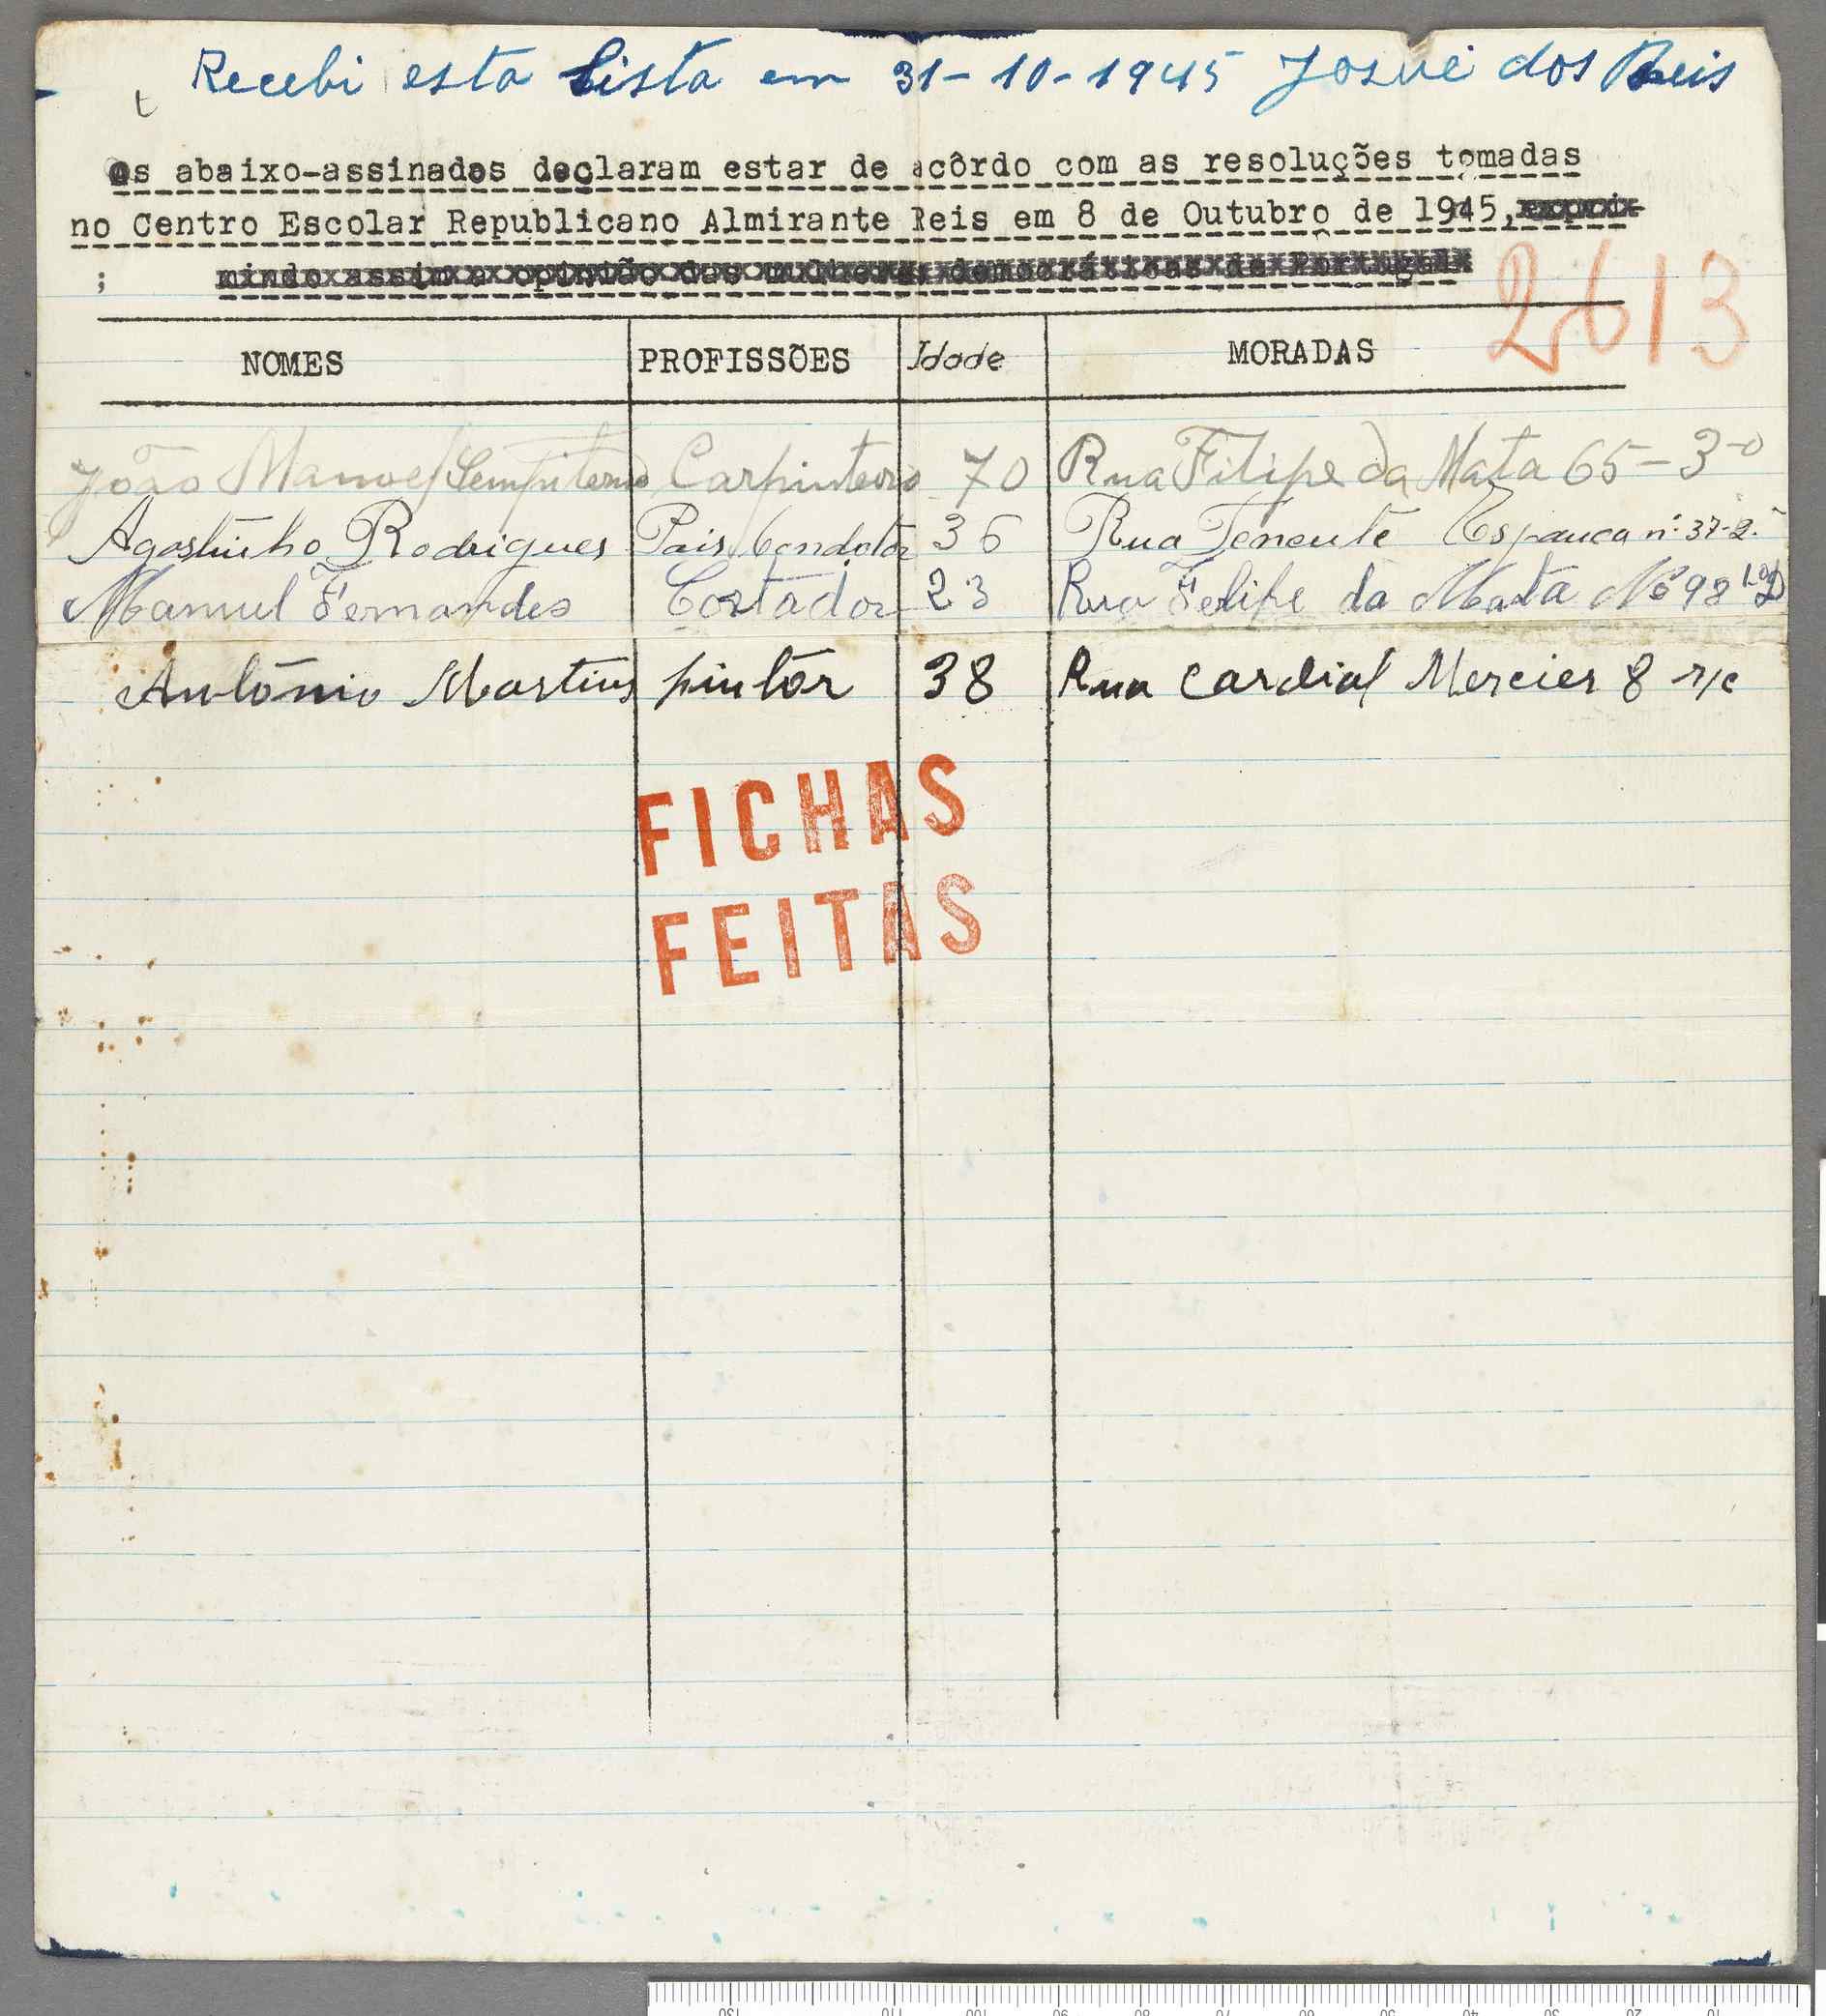 Recebi esta Lista em 31-10-1945 Josué dos Reis
Os abaixo-assinados declaram estar de acôrdo com as resoluções tomadas
no Centro Escolar Republicano Almirante Reis em 8 de Outubro de 1945, exprimi-
; mindo assim a opinião das mulheres democráticas de Portugal.
2613
NOMES PROFISSÕES Idade MORADAS
João Manoel Sempiterno Carpinteiro 70 Rua Filipe da Mata 65-3-o
Agostinho Rodrigues Pais Condotor 36 Rua Tenente Espanca nº 37-2.º
Manuel Fernandes Cortador 23 Rua Felipe da Mata Nº 98 1º D
António Martins pintor 38 Rua Cardial Mercier 8 r/c
FICHAS
FEITAS